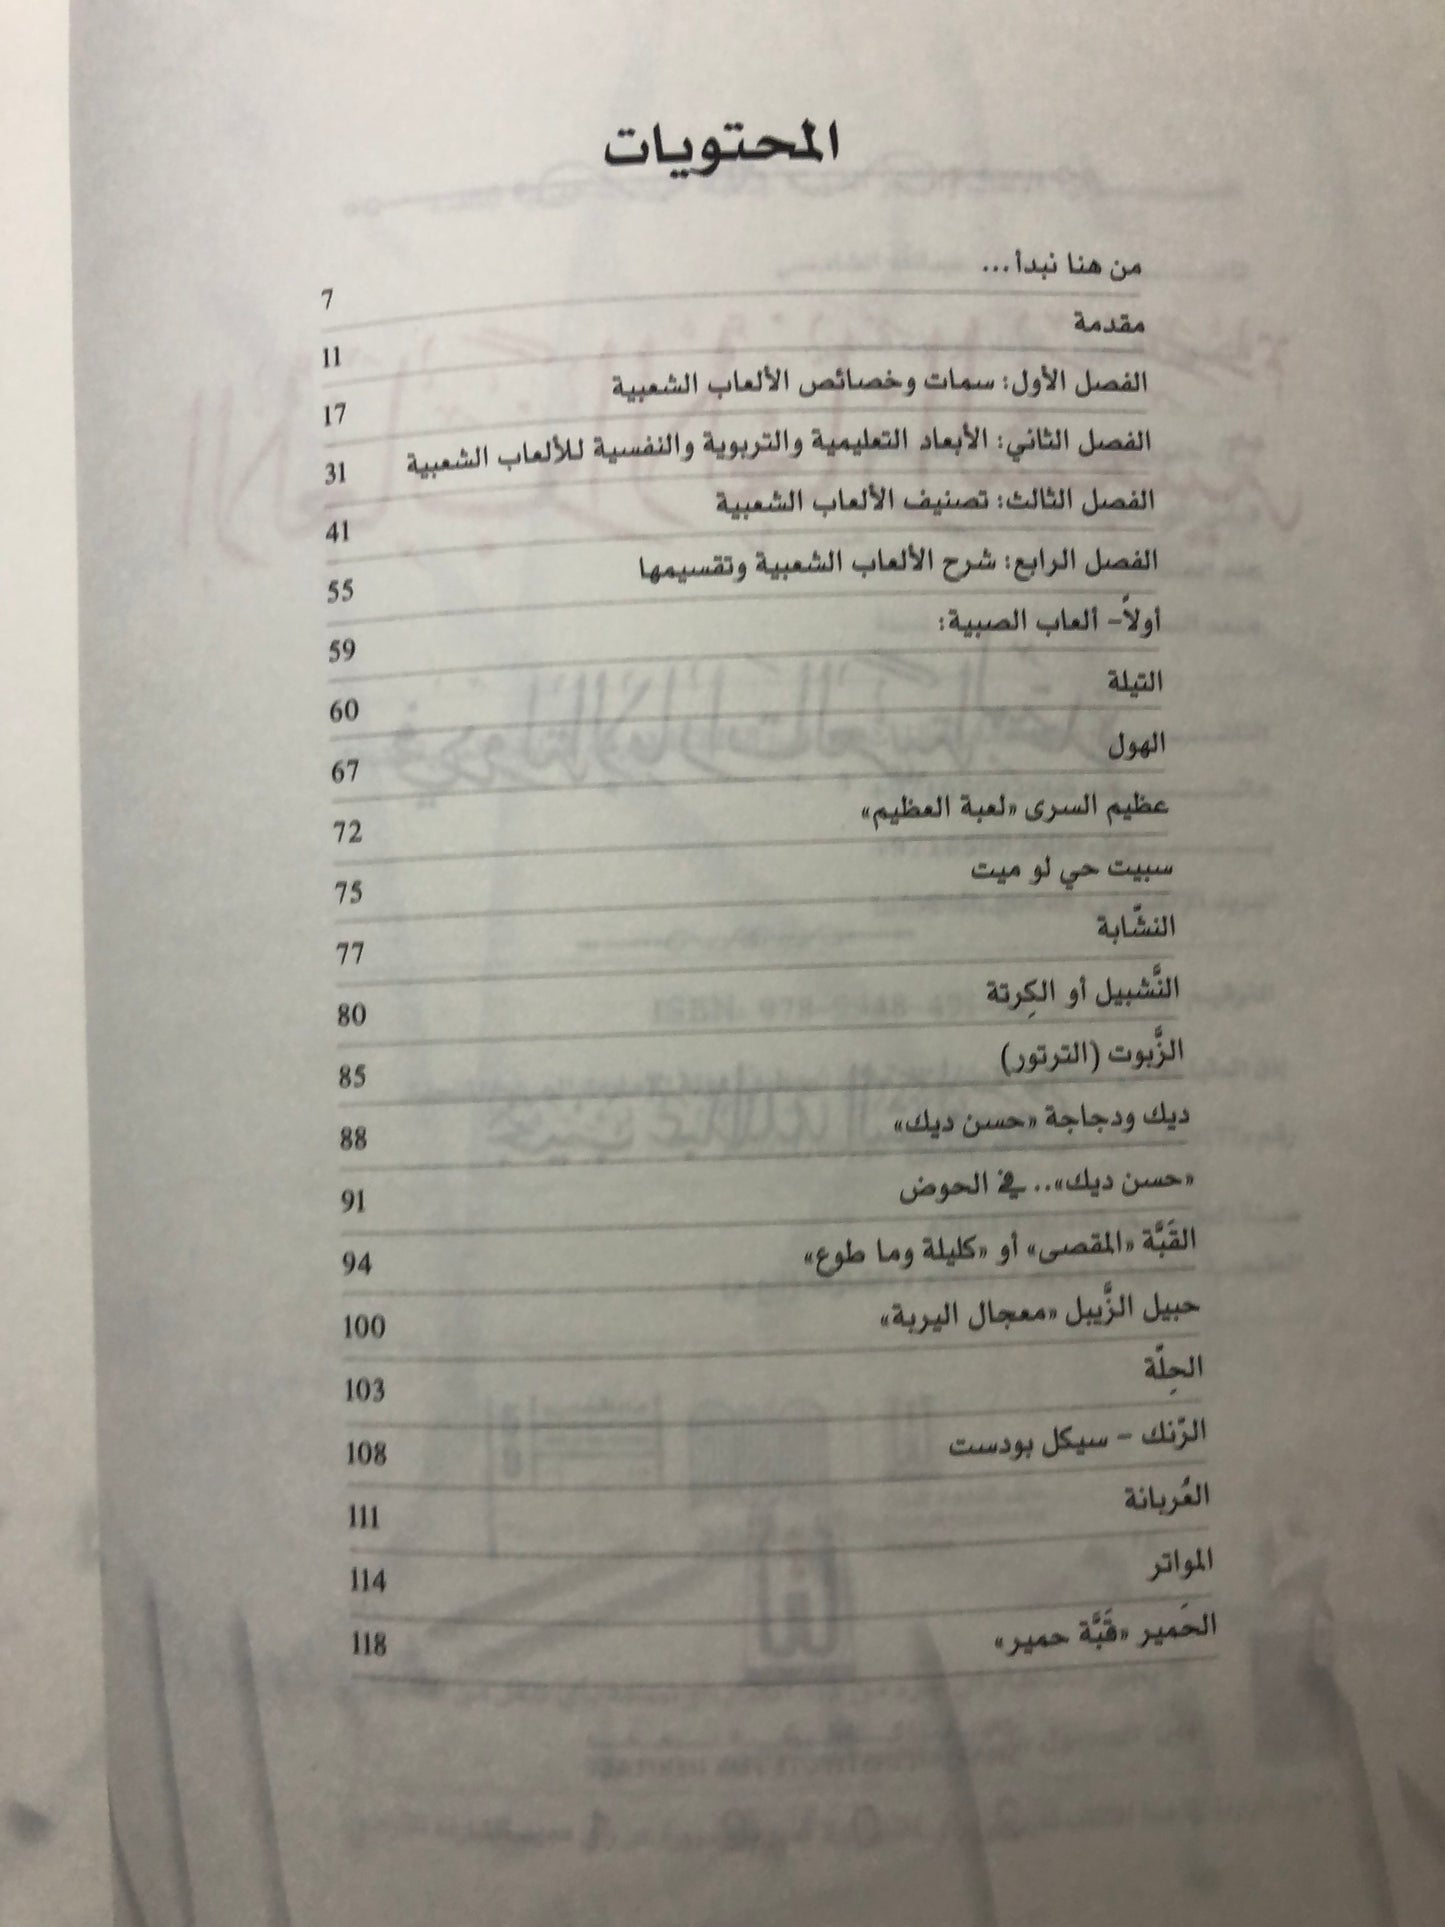 المحتويات
من هنا نبدأ... 7
مقدمة 11
الفصل الأول: سمات وخصائص الألعاب الشعبية 17
الفصل الثاني: الأبعاد التعليمية والتربوية والنفسية للألعاب الشعبية 31
الفصل الثالث: تصنيف الألعاب الشعبية 41
الفصل الرابع: شرح الألعاب الشعبية وتقسيمها 55
أولاً- ألعاب الصبية: 59
التيلة 60
الهول 67
عظيم السرى «لعبة العظيم» 72
سبيت حي لو ميت 75
النشّابة 77
النَّشبيل أو الكِرتة 80
الزَّبوت (الترتور) 85
ديك ودجاجة «حسن ديك» 88
«حسن ديك».. في الحوض 91
القَبَّة «المقصى» أو «كليلة وما طوع» 94
حبيل الزَّيبل «معجال اليربة» 100
الحِلّة 103
الرّنك – سيكل بودست 108
العُربانة 111
المواتر 114
الحَمير «قَبَّة حمير» 118